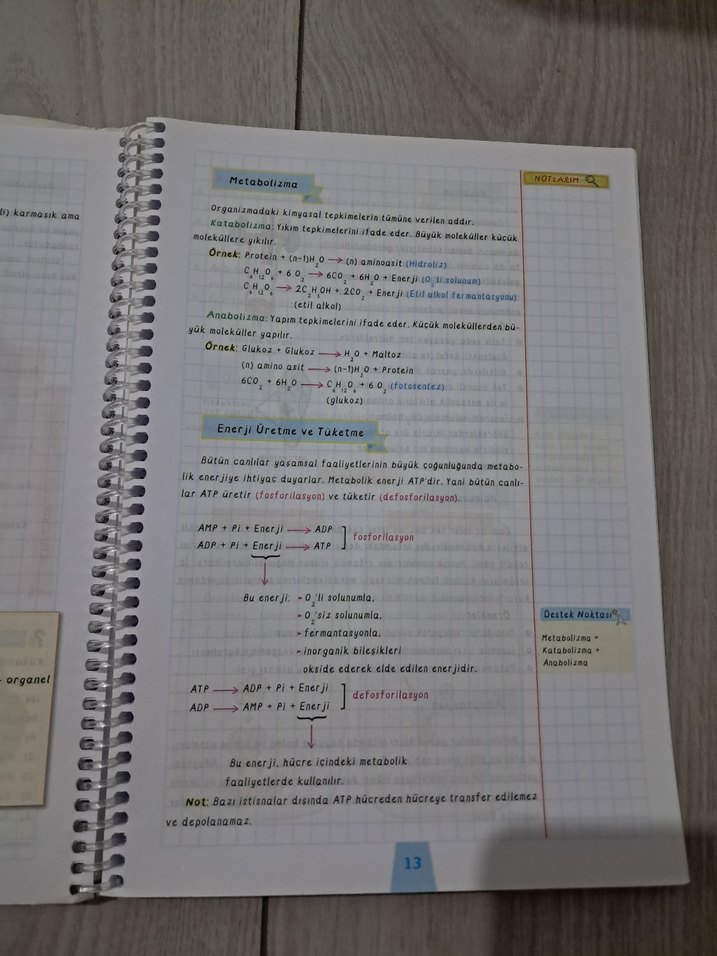 li) karmaşık ama
organel
Metabolizma
NOTLARIM
Organizmadaki kimyasal tepkimelerin tümüne verilen addır.
Katabolizma: Yıkım tepkimelerini ifade eder. Büyük moleküller küçük
moleküllere yıkılır.
Örnek: Protein + (n-1)H₂O → (n) aminoasit (Hidroliz)
C₆H₁₂O₆ + 6 O₂ → 6CO₂ + 6H₂O + Enerji (O₂'li solunum)
C₆H₁₂O₆ → 2C₂H₅OH + 2CO₂ + Enerji (Etil alkol fermantasyonu)
(etil alkol)
Anabolizma: Yapım tepkimelerini ifade eder. Küçük moleküllerden bü-
yük moleküller yapılır.
Örnek: Glukoz + Glukoz → H₂O + Maltoz
(n) amino asit → (n-1)H₂O + Protein
6CO₂ + 6H₂O → C₆H₁₂O₆ + 6 O₂ (fotosentez)
(glukoz)
Enerji Üretme ve Tüketme
Bütün canlılar yaşamsal faaliyetlerinin büyük çoğunluğunda metabo-
lik enerjiye ihtiyaç duyarlar. Metabolik enerji ATP'dir. Yani bütün canlı-
lar ATP üretir (fosforilasyon) ve tüketir (defosforilasyon).
AMP + Pi + Enerji → ADP
ADP + Pi + Enerji → ATP
fosforilasyon
Bu enerji: ➤ O₂'li solunumla,
➤ O₂'siz solunumla,
➤ fermantasyonla,
➤ inorganik bileşikleri
okside ederek elde edilen enerjidir.
ATP → ADP + Pi + Enerji
ADP → AMP + Pi + Enerji
defosforilasyon
Bu enerji, hücre içindeki metabolik
faaliyetlerde kullanılır.
Not: Bazı istisnalar dışında ATP hücreden hücreye transfer edilemez
ve depolanamaz.
Destek Noktası
Metabolizma =
Katabolizma +
Anabolizma
13